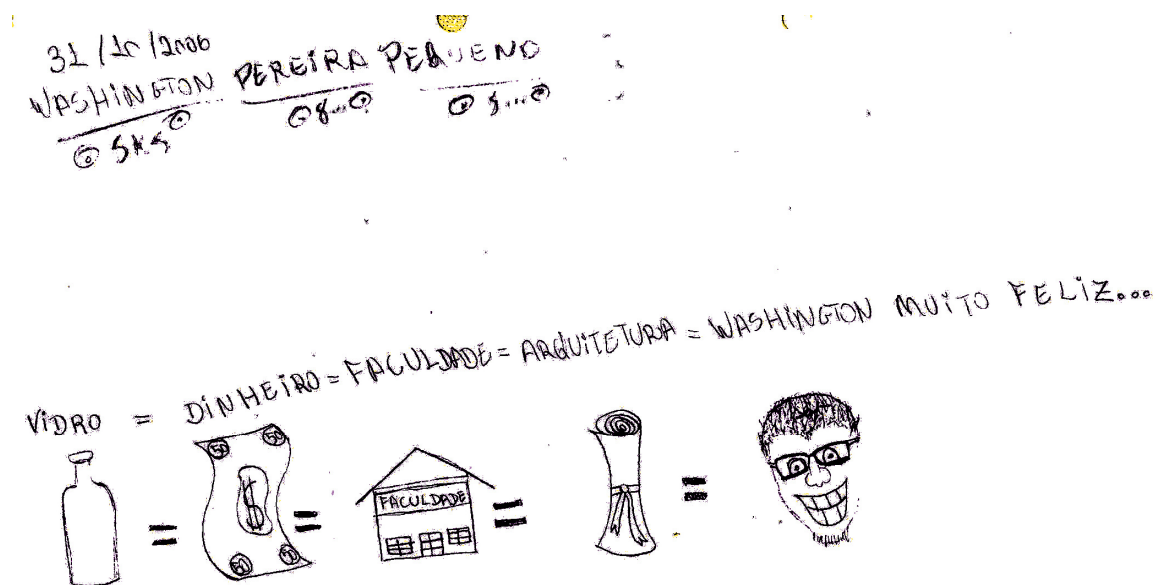 31/10/2006
WASHINGTON PEREIRA PEQUENO
SKS
VIDRO = DINHEIRO = FACULDADE = ARQUITETURA = WASHINGTON MUITO FELIZ...
50 50
$
FACULDADE
50
= = = =